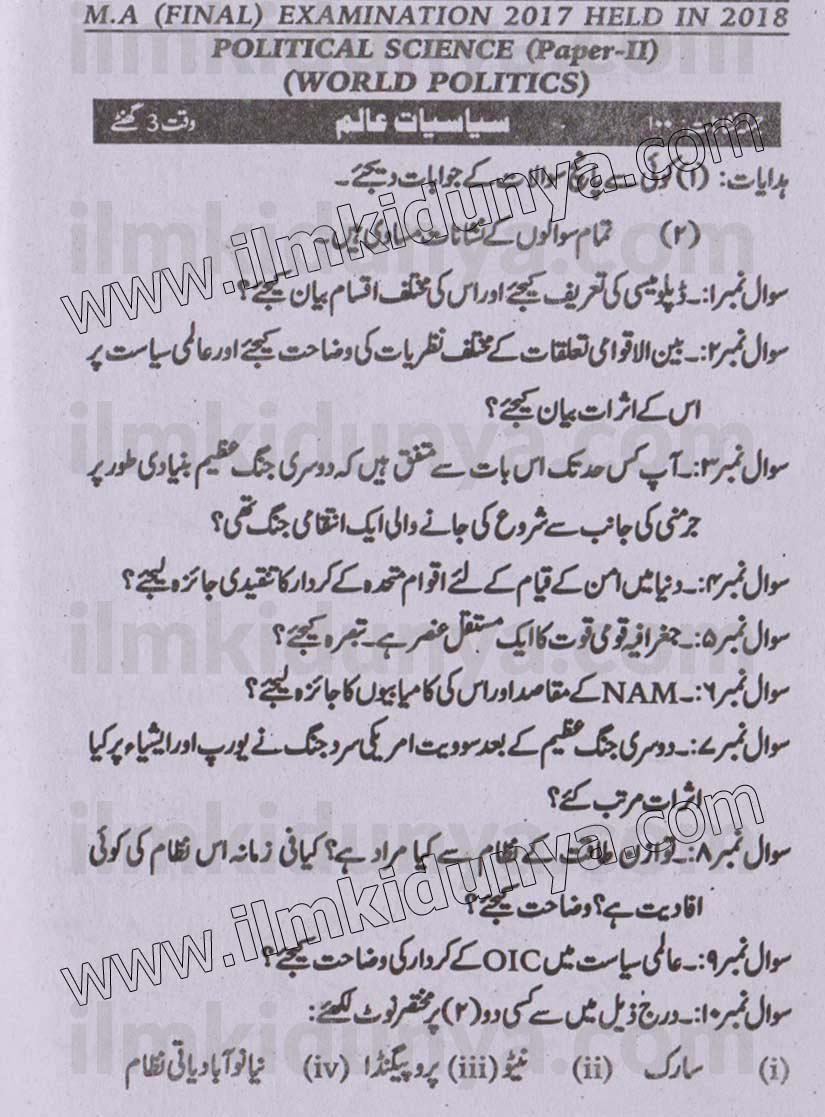 M.A (FINAL) EXAMINATION 2017 HELD IN 2018
POLITICAL SCIENCE (Paper-II)
(WORLD POLITICS)
۱۰۰ سیاسیات عالم وقت 3 گھنٹے
ہدایات: (۱) کوئی سے پانچ سوالات کے جوابات دیجئے۔
(۲) تمام سوالوں کے نشانات مساوی ہیں۔
سوال نمبر۱:۔ ڈپلومیسی کی تعریف کیجئے اور اس کی مختلف اقسام بیان کیجئے؟
سوال نمبر۲:۔ بین الاقوامی تعلقات کے مختلف نظریات کی وضاحت کیجئے اور عالمی سیاست پر
اس کے اثرات بیان کیجئے؟
سوال نمبر۳:۔ آپ کس حد تک اس بات سے متفق ہیں کہ دوسری جنگ عظیم بنیادی طور پر
جرمنی کی جانب سے شروع کی جانے والی ایک انتقامی جنگ تھی؟
سوال نمبر۴:۔ دنیا میں امن کے قیام کے لئے اقوام متحدہ کے کردار کا تنقیدی جائزہ لیجئے؟
سوال نمبر۵:۔ جغرافیہ قومی قوت کا ایک مستقل عنصر ہے۔ تبصرہ کیجئے؟
سوال نمبر۶:۔ NAM کے مقاصد اور اس کی کامیابیوں کا جائزہ لیجئے؟
سوال نمبر۷:۔ دوسری جنگ عظیم کے بعد سوویت امریکی سرد جنگ نے یورپ اور ایشیاء پر کیا
اثرات مرتب کئے؟
سوال نمبر۸:۔ توازن طاقت کے نظام سے کیا مراد ہے؟ کیا فی زمانہ اس نظام کی کوئی
افادیت ہے؟ وضاحت کیجئے؟
سوال نمبر۹:۔ عالمی سیاست میں OIC کے کردار کی وضاحت کیجئے؟
سوال نمبر۱۰:۔ درج ذیل میں سے کسی دو (۲) پر مختصر نوٹ لکھئے:
(i) سارک (ii) نیٹو (iii) پروپیگنڈا (iv) نیا نوآبادیاتی نظام
www.ilmkidunya.com
www.ilmkidunya.com
ilmkidunya.com
ilmkidunya.com
ilmkidunya.com
ilmkidunya.com
ilmkidunya.com
ilmkidunya.com